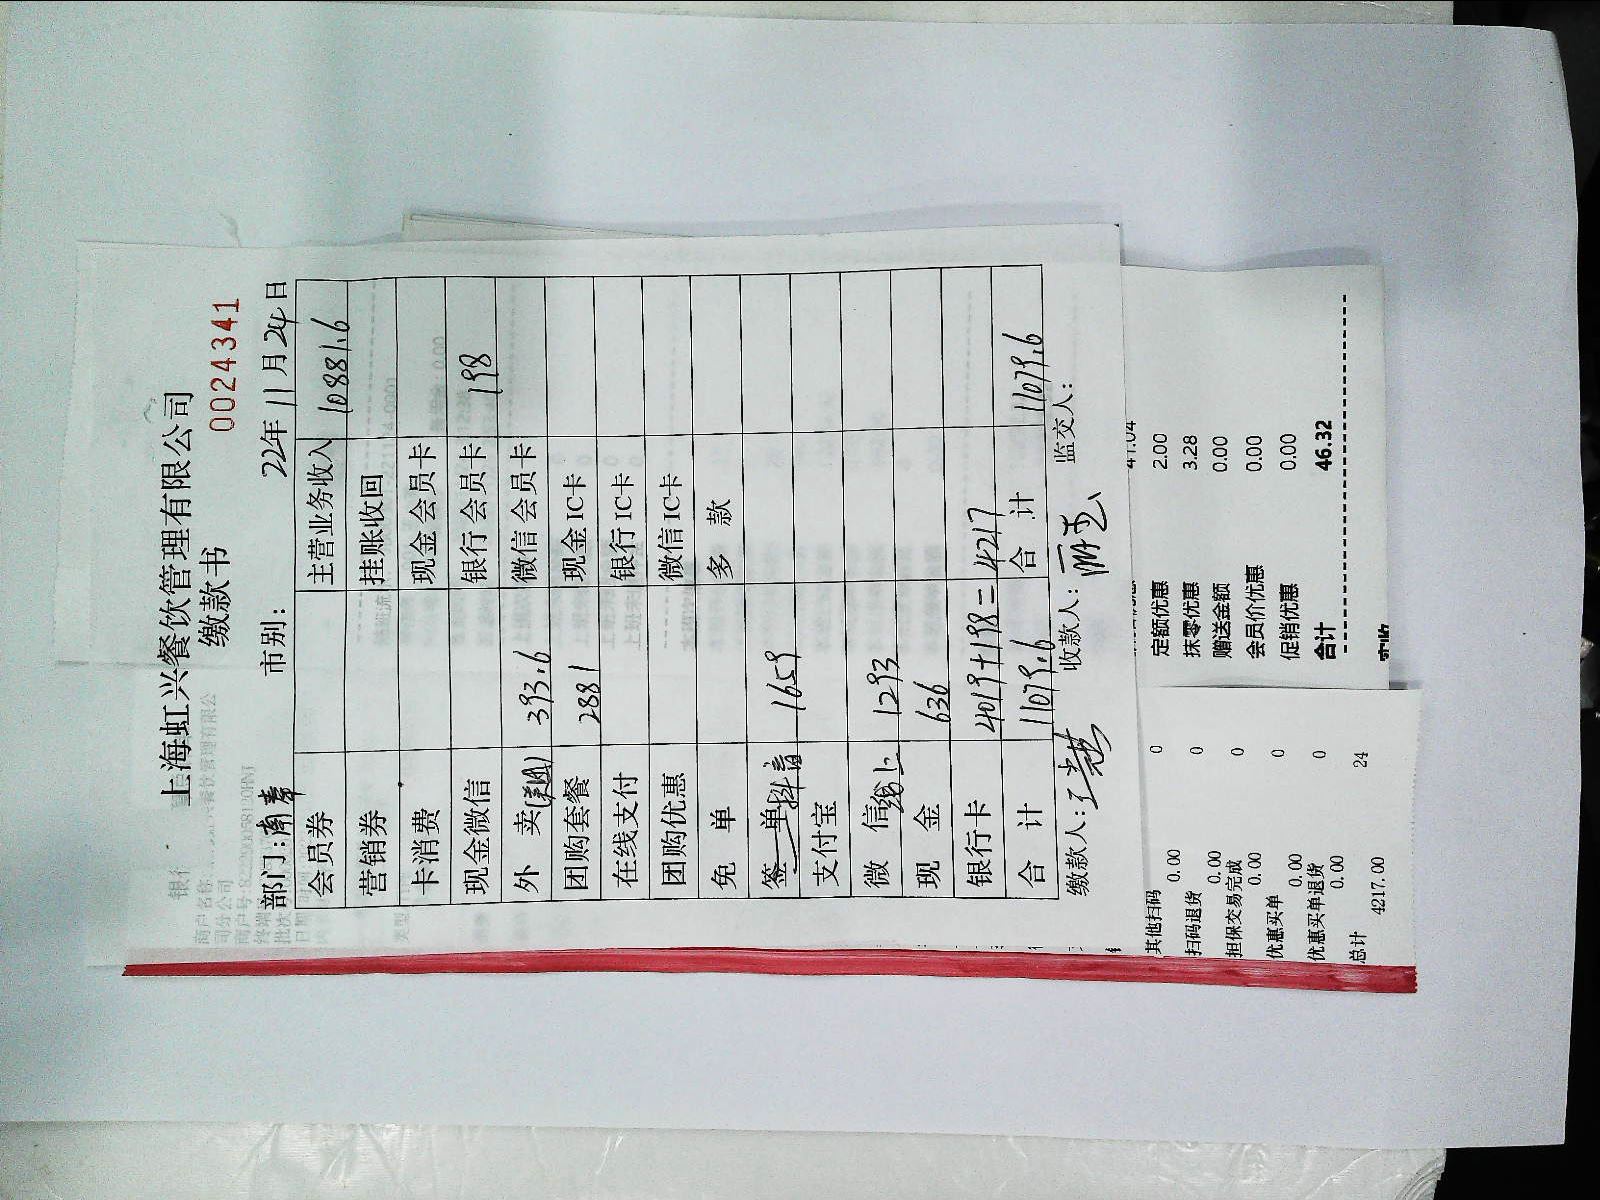 上海虹兴餐饮管理有限公司
缴款书 0024341
部门:南奉 市别: 22年11月24日
会员券 主营业务收入 10881.6
营销券 挂账收回
卡消费 现金会员卡
现金微信 银行会员卡 198
外 卖(美团) 393.6 微信会员卡
团购套餐 2881 现金IC卡
在线支付 银行IC卡
团购优惠 微信IC卡
免 单 多 款
签 单 抖音 1659
支付宝
微 信 线上 1293
现 金 636
银行卡 4019+198=4217
合 计 11079.6 合 计 11079.6
缴款人: 收款人: 监交人:
银行
商户名称
司分公司
商户号
终端
批次
类型
41.04
定额优惠 2.00
抹零优惠 3.28
赠送金额 0.00
会员价优惠 0.00
促销优惠 0.00
合计 46.32
实收
其他扫码 0
0.00
扫码退货 0
0.00
担保交易完成 0
0.00
优惠买单 0
0.00
优惠买单退货 0
0.00
总计 24
4217.00